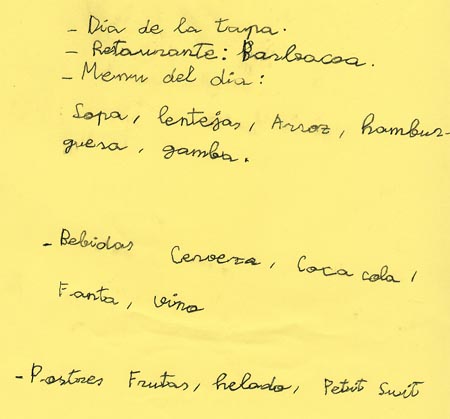 - Día de la tapa.
- Retaurante: Barbacoa.
- Menu del día:
Sopa, lentejas, Arroz, hambur-
guesa, gamba.
- Bebidas Cerveza, Coca cola,
Fanta, vino
- Postres Frutas, helado, Petit Suit